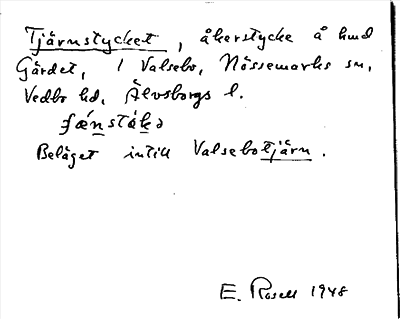 Tjärnstycket, åkerstycke å hmd
Gärdet, i Valsebo, Nössemarks sn,
Vedbo hd, Älvsborgs l.
Beläget intill Valsebotjärn.
E. Rosell 1948